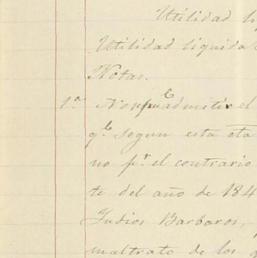 Utilidad li
Utilidad liquida
Notas.
1.ª No se admitir el
q.e segun esta ota
no p.r el contrario
te del año de 184
Indios Barbaros,
maltrato de los q